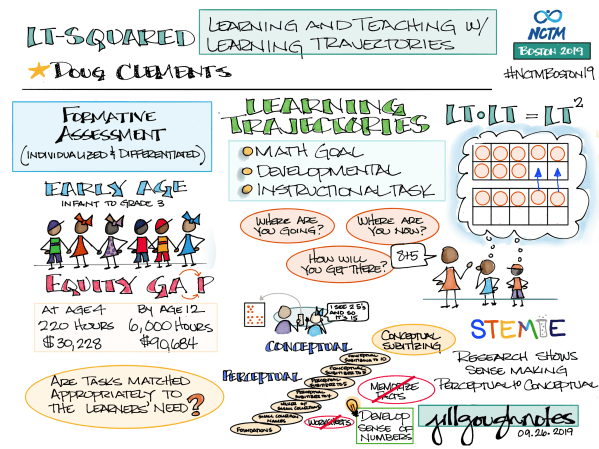 LT-SQUARED
LEARNING AND TEACHING W/
LEARNING TRAJECTORIES
NCTM
BOSTON 2019
#NCTMBOSTON19
DOUG CLEMENTS
FORMATIVE
ASSESSMENT
(INDIVIDUALIZED & DIFFERENTIATED)
EARLY AGE
INFANT TO GRADE 3
EQUITY GAP
AT AGE 4
220 HOURS
$30,228
BY AGE 12
6,000 HOURS
$90,684
ARE TASKS MATCHED
APPROPRIATELY TO
THE LEARNERS' NEED?
LEARNING
TRAJECTORIES
MATH GOAL
DEVELOPMENTAL
INSTRUCTIONAL TASK
WHERE ARE
YOU GOING?
WHERE ARE
YOU NOW?
HOW WILL
YOU GET THERE?
LT·LT = LT²
8+5
I SEE 2 5'S
AND SO
IT'S 15
CONCEPTUAL
PERCEPTUAL
CONCEPTUAL
SUBITIZING
CONCEPTUAL
SUBITIZING TO 10
CONCEPTUAL
SUBITIZER TO 5
PERCEPTUAL
SUBITIZER TO 5
PERCEPTUAL
SUBITIZER TO 4
MAKER OF
SMALL COLLECTIONS
SMALL COLLECTION
NAMER
FOUNDATIONS
MEMORIZE
FACTS
WORKSHEETS
DEVELOP
SENSE OF
NUMBERS
STEMIE
RESEARCH SHOWS
SENSE MAKING
PERCEPTUAL TO CONCEPTUAL
jillgoughnotes
09.26.2019